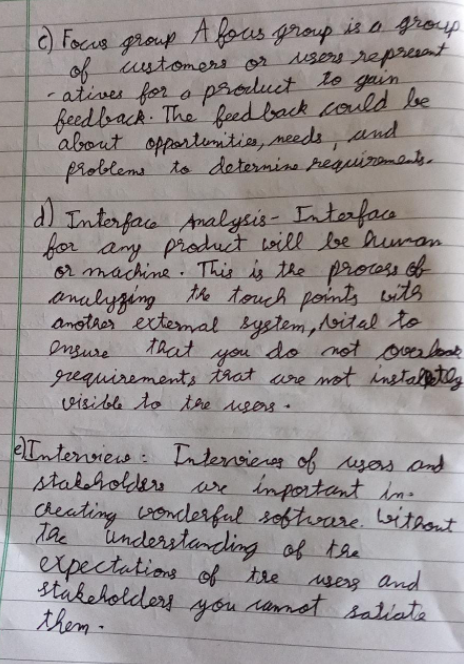 c) Focus group A focus group is a group
of customers or users represent
-atives for a product to gain
feedback. The feedback could be
about opportunities, needs, and
problems to determine requirements.
d) Interface Analysis- Interface
for any product will be human
or machine. This is the process of
analyzing the touch points with
another external system, vital to
ensure that you do not overlook
requirements that are not
visible to the users.
e) Interview: Interviews of users and
stakeholders are important in
creating wonderful software. Without
the understanding of the
expectations of the users and
stakeholders you cannot satiate
them.